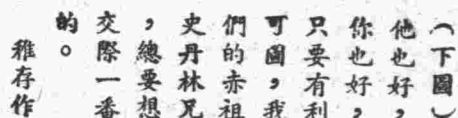 （下圖）
他也好，
你也好，
只要有利
可圖，我
們的赤祖
史丹林兄
，總要想
交際一番
的。
稚存作